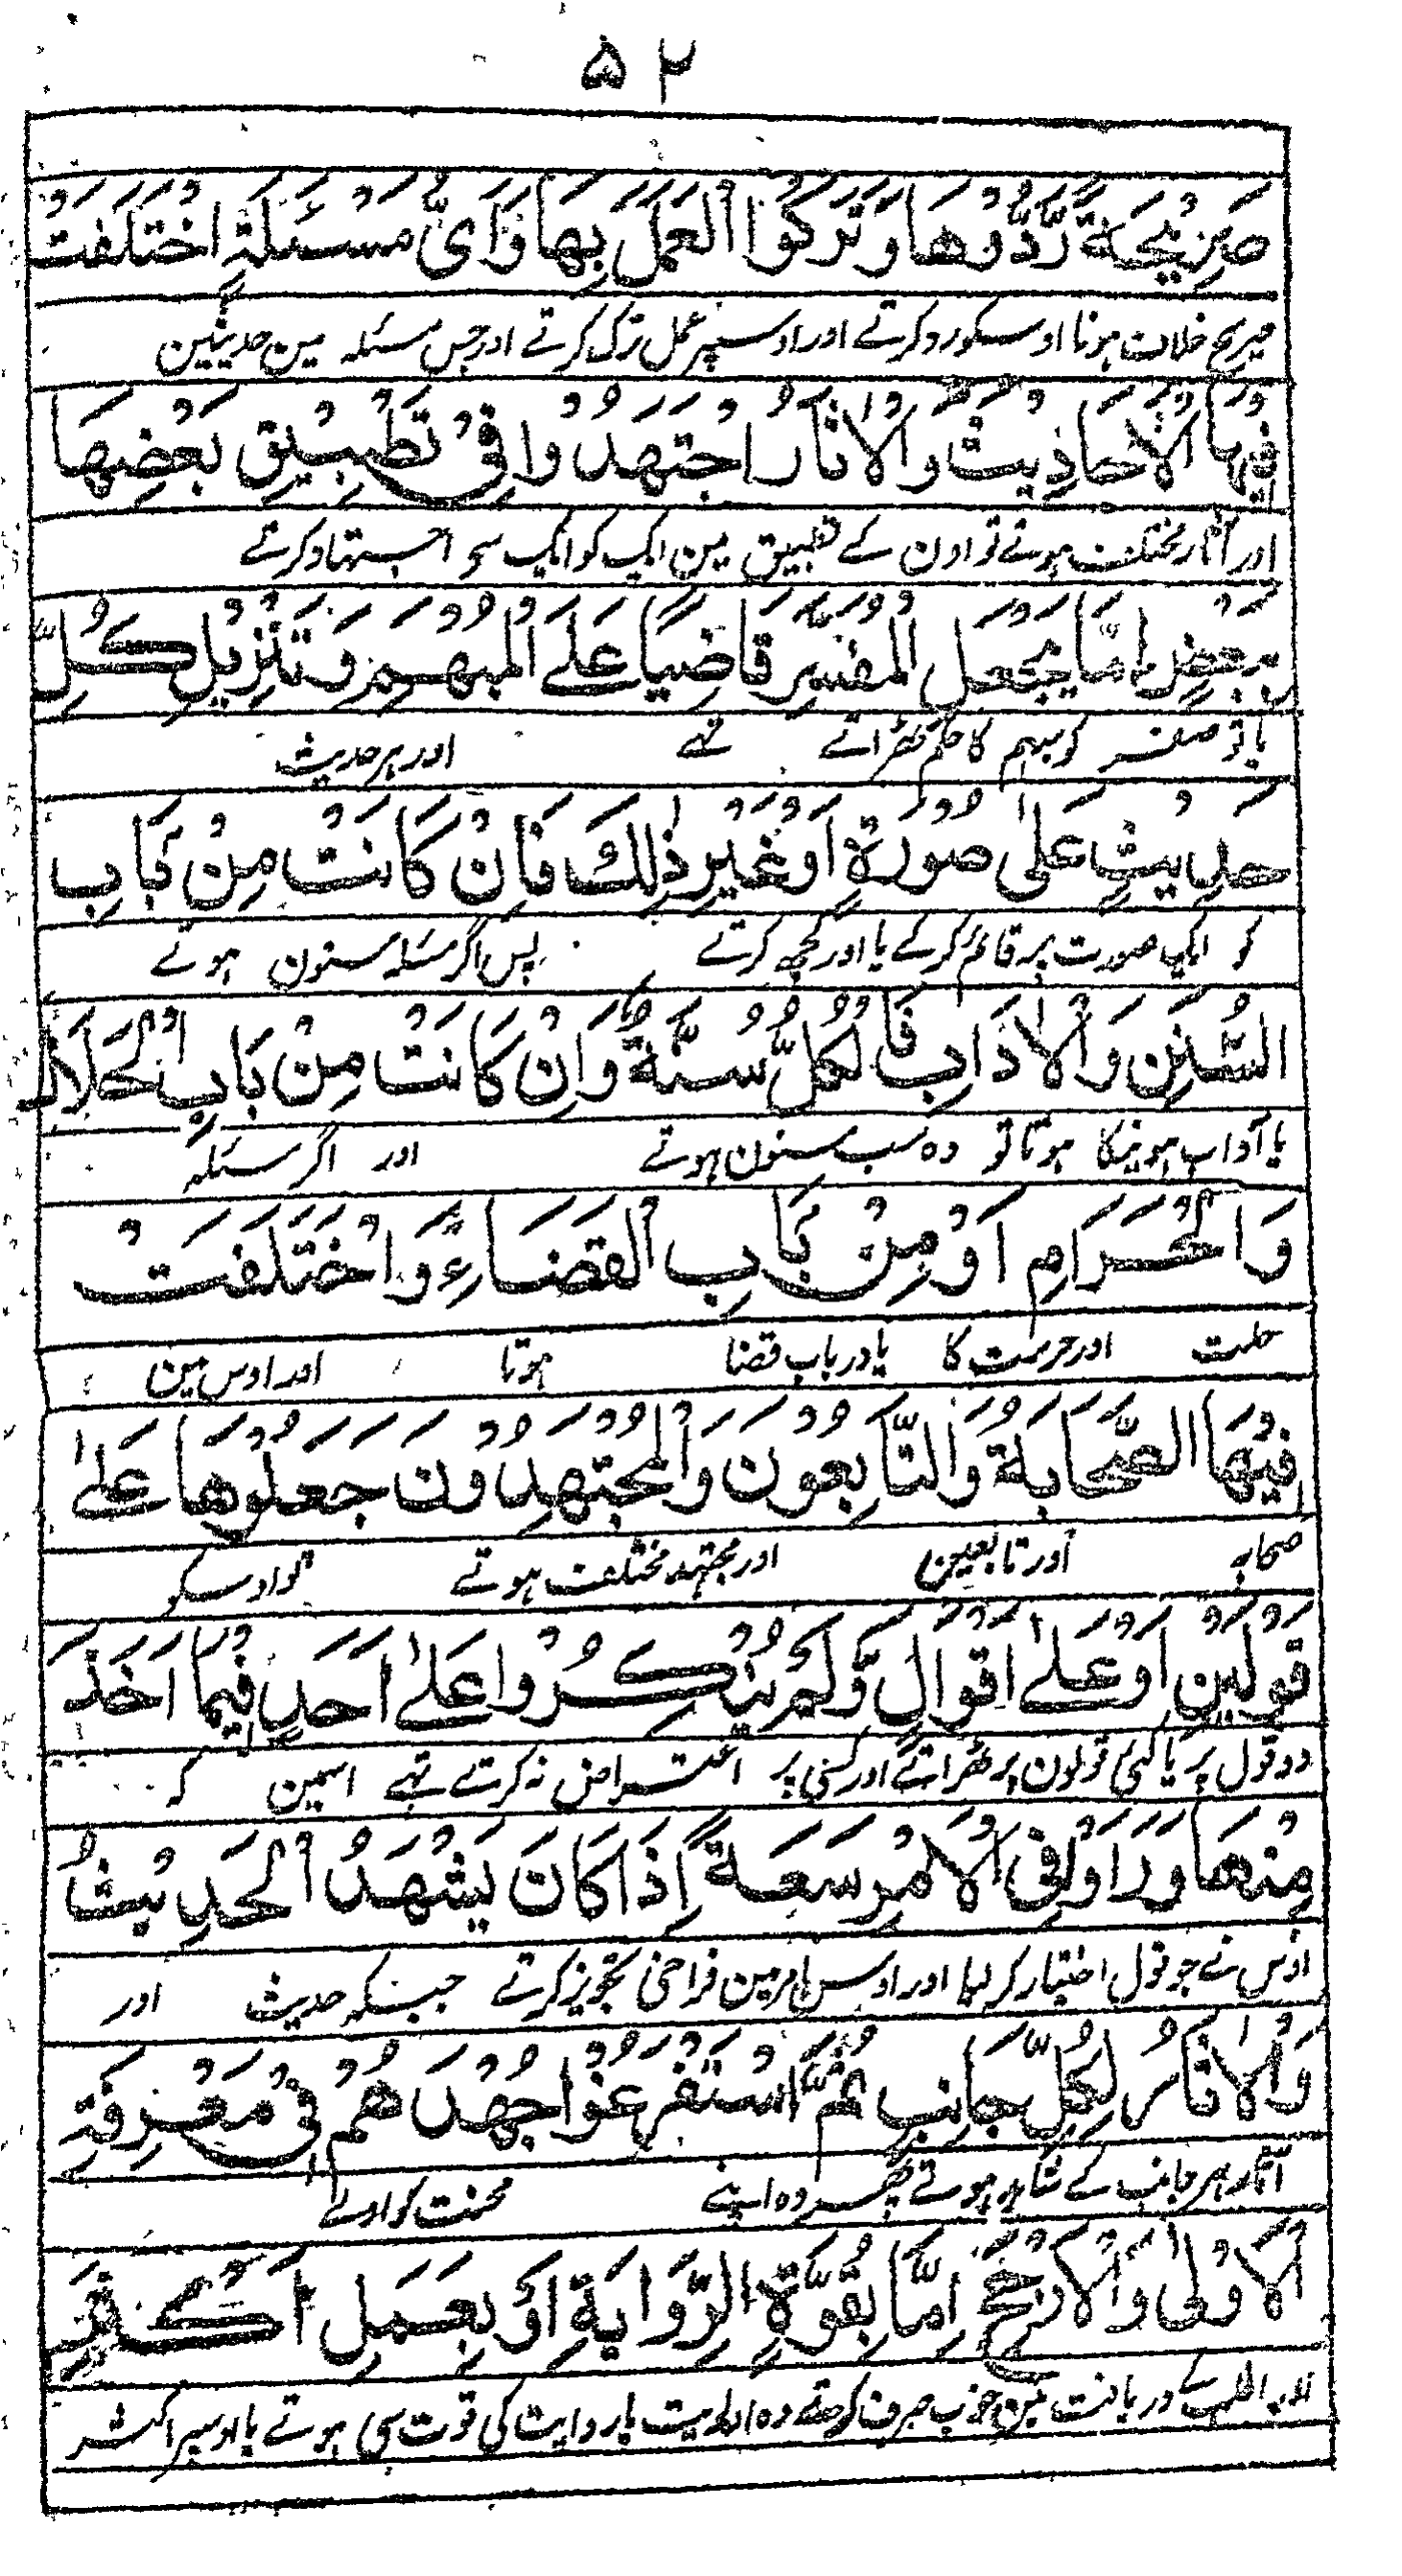 ۵۲
صَرِيْحَةً رَدُّوْهَا وَتَرَكُوا الْعَمَلَ بِهَا وَاَىُّ مَسْئَلَةٍ اخْتَلَفَتْ
صریح خلاف ہوتا اوسکو رد کرتے اور اوسپر عمل ترک کرتے اور جس مسئلہ مین حدیثین
فِيْهَا الْاَحَادِيْثُ وَالْاٰثَارُ اجْتَهَدُوْا فِىْ تَطْبِيْقِ بَعْضِهَا
اور آثار مختلف ہوتے تو اون کے تطبیق مین ایک کو ایک سے اجتہاد کرتے
بِبَعْضٍ اِمَّا يَجْعَلُ الْمُفَسِّرَ قَاضِيًا عَلَى الْمُبْهَمِ وَتَنْزِيْلِ كُلِّ
یا تو مفسر کو مبہم کا حکم ٹھراتے تھے اور ہر حدیث
حَدِيْثٍ عَلٰى صُوْرَةٍ اَوْ غَيْرِ ذٰلِكَ فَاِنْ كَانَتْ مِنْ بَابِ
کو ایک صورت پر قائم کرکے یا اور کچھ کرتے پس اگر مسئلہ مسنون ہوتے
السُّنَنِ وَالْاٰدَابِ فَالْكُلُّ سُنَّةٌ وَاِنْ كَانَتْ مِنْ بَابِ الْحَلَالِ
یا آداب ہونیکا ہوتا تو وہ سب مسنون ہوتے اور اگر مسئلہ
وَالْحَرَامِ اَوْ مِنْ بَابِ الْقَضَاءِ وَاخْتَلَفَتْ
حلت اور حرمت کا یا در باب قضا ہوتا اور اوس مین
فِيْهَا الصَّحَابَةُ وَالتَّابِعُوْنَ وَالْمُجْتَهِدُوْنَ جَعَلُوْهَا عَلٰى
صحابہ اور تابعین اور مجتہد مختلف ہوتے تو اوسکو
قَوْلَيْنِ اَوْ عَلٰى اَقْوَالٍ وَّلَمْ يُنْكِرُوْا عَلٰى اَحَدٍ فِيْمَا اَخَذَ
دو قول پر یا کئی قولون پر ٹھراتے اور کسی پر اعتراض نہ کرتے تھے اسمین کہ
مِنْهَا وَرَاَوْا فِى الْاَمْرِ سَعَةً اِذَا كَانَ يَشْهَدُ الْحَدِيْثُ
اوس نے جو قول اختیار کر لیا اور اوس امر مین فراخی تجویز کرتے جبکہ حدیث اور
وَالْاٰثَارُ لِكُلِّ جَانِبٍ ثُمَّ اسْتَفْرَغُوْا جُهْدَهُمْ فِىْ مَعْرِفَةِ
آثار ہر جانب کے شاہد ہوتے پھر وہ اپنے محنت کو اولے
الْاَوْلٰى وَالْاَرْجَحِ اِمَّا بِقُوَّةِ الرِّوَايَةِ اَوْ بِعَمَلِ اَكْثَرِ
کے دریافت مین خوب صرف کرتے وہ اولویت یا روایت کی قوت سے ہوتے یا اوسپر اکثر